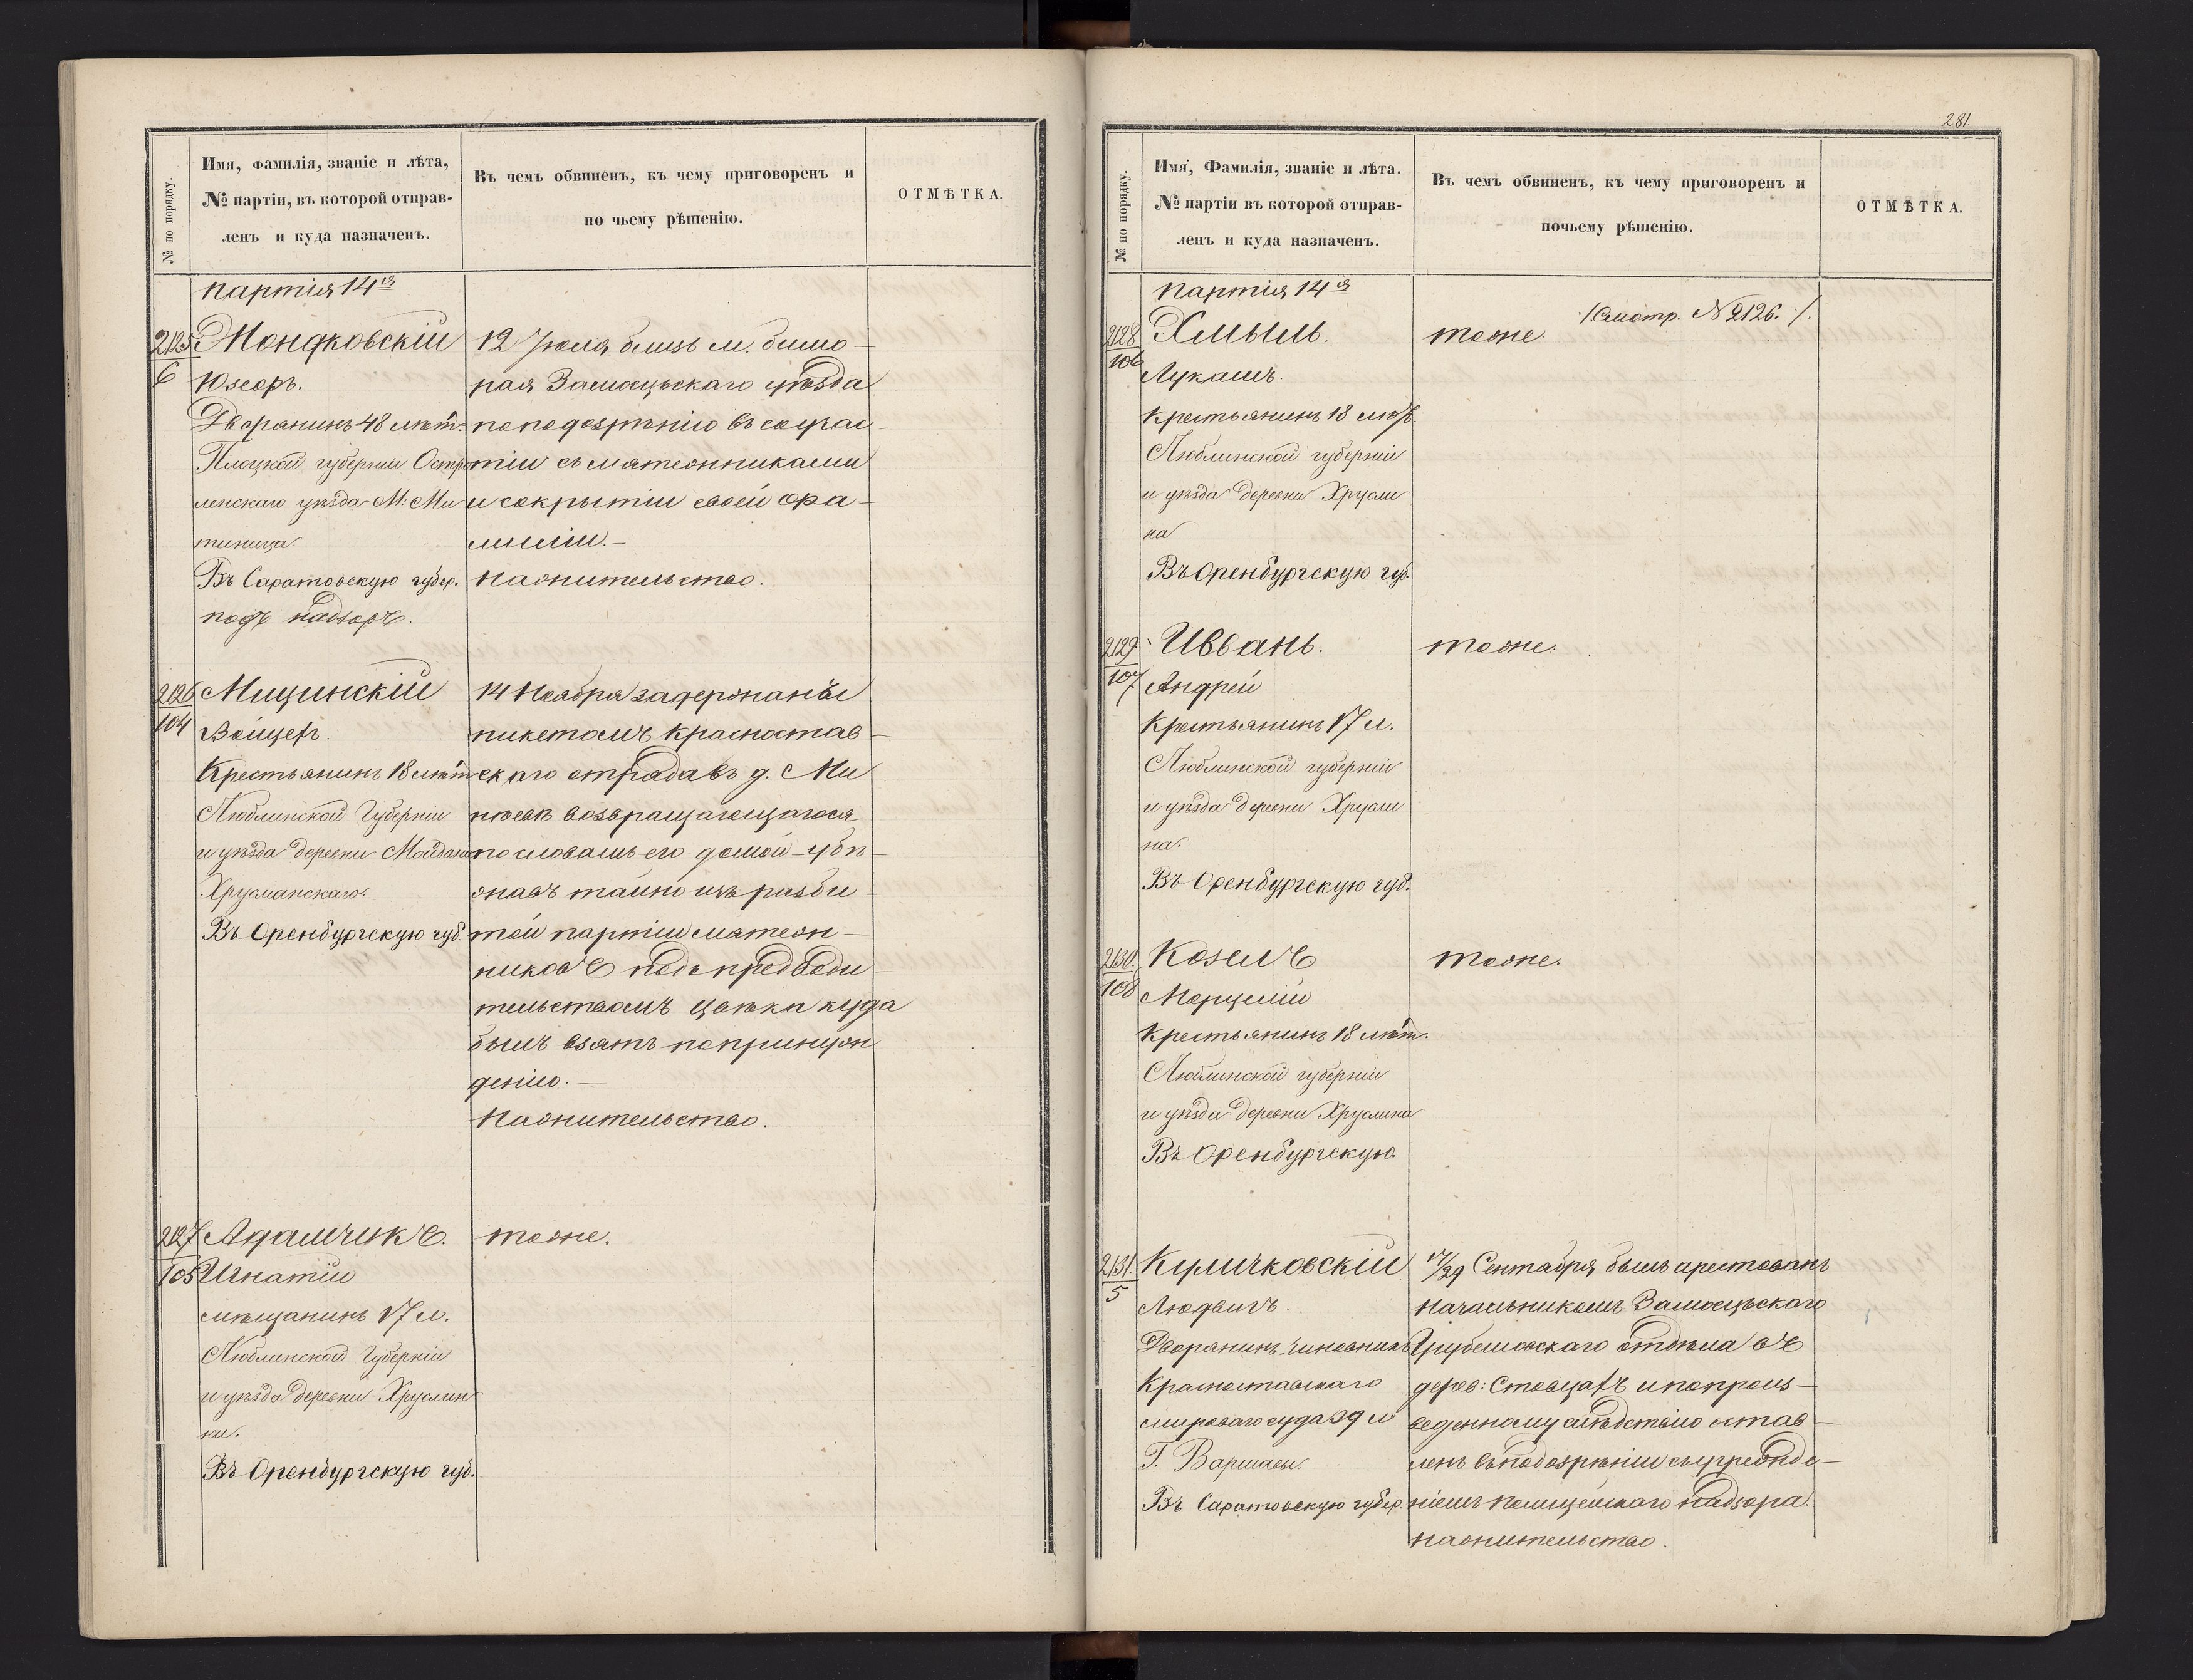 № по порядку.
Имя, фамилія, званіе и лѣта,
№ партіи, въ которой отправ-
ленъ и куда назначенъ.
Въ чемъ обвиненъ, къ чему приговоренъ и
по чьему рѣшенію.
ОТМѢТКА.
Партія 14я
2125
6
Мондковскій
Юзефъ.
Дворянинъ 48 лѣт.
Плоцкой губерніи Остро
ленскаго уѣзда М. Ми
тиница.
Въ Саратовскую губер.
подъ надзоръ.
12 Іюля близь м.
рая Замосцьскаго уѣзда
по подозрѣнію въ соучас-
тіи съ мятежниками
и сокрытіи своей фа-
миліи.-
На жительство.
2126
104
Мицинскій
Войцехъ.
Крестьянинъ 18 лѣт
Люблинской Губерніи
и уѣзда деревни Майдана
Хрусланскаго.
Въ Оренбургскую губ.
14 Ноября задержанъ
пикетомъ Красностав-
скаго отряда въ д. Ми
возвращающагося
по словамъ его домой - убѣ-
жавъ тайно изъ разби-
той партіи мятеж-
никовъ подъ предводи
тельствомъ Цвѣка куда
былъ взятъ по принуж
денію.-
На жительство.
2127
105
Адамчикъ.
Игнатій
мѣщанинъ 17 л.
Люблинской Губерніи
и уѣзда деревни Хруслин
ки.
Въ Оренбургскую губ.
тоже.
281.
№ по порядку.
Имя, Фамилія, званіе и лѣта.
№ партіи въ которой отправ-
ленъ и куда назначенъ.
Въ чемъ обвиненъ, къ чему приговоренъ и
почьему рѣшенію.
ОТМѢТКА.
Партія 14я
2128
106
Хмыль.
Лукашъ.
Крестьянинъ 18 лѣтъ.
Люблинской губерніи
и уѣзда деревни Хрусли
на
Въ Оренбургскую губ.
тоже.
/:Смотр. № 2126.:/.
2129
107
Ивванъ.
Андрей
Крестьянинъ 17 л.
Люблинской губерніи
и уѣзда деревни Хрусли
на.
Въ Оренбургскую губ.
тоже.
2130.
108
Козелъ
Марцелій
Крестьянинъ 18 лѣт.
Люблинской губерніи
и уѣзда деревни Хруслина
Въ Оренбургскую.
тоже.
2131.
5
Куличковскій
Людвигъ.
Дворянинъ чиновникъ
Красноставскаго
мироваго суда 39 л
Г. Варшавы.
Въ Саратовскую губер.
17/29 Сентября былъ арестованъ
Начальникомъ Замосцьскаго
Грубешовскаго отдѣла въ
дерев: Ставцахъ и по произ-
веденному слѣдствію остав-
ленъ въ подозрѣніи съ учрежде-
ніемъ полицейскаго надзора.
На жительство.